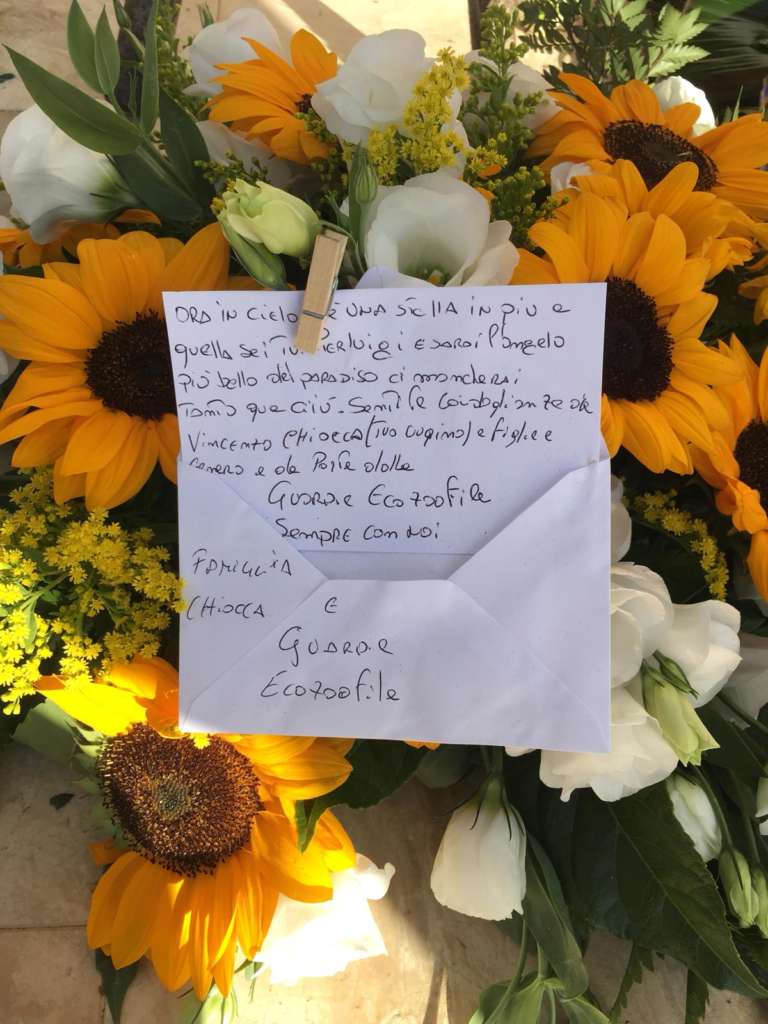 ORA IN CIELO È UNA STELLA IN PIÙ E
quella SEI TU. PIERLUIGI E SARAI l'ANGELO
più bello del PARADISO CI MANCHERAI
TANTO QUAGGIÙ. SENTITE CONDOGLIANZE DA
VINCENZO CHIOCCA (TUO CUGINO) e figlie e
GENERO e da PARTE dalle
GUARDIE ECOZOOFILE
SEMPRE CON NOI
FAMIGLIA
CHIOCCA E
GUARDIE
ECOZOOFILE